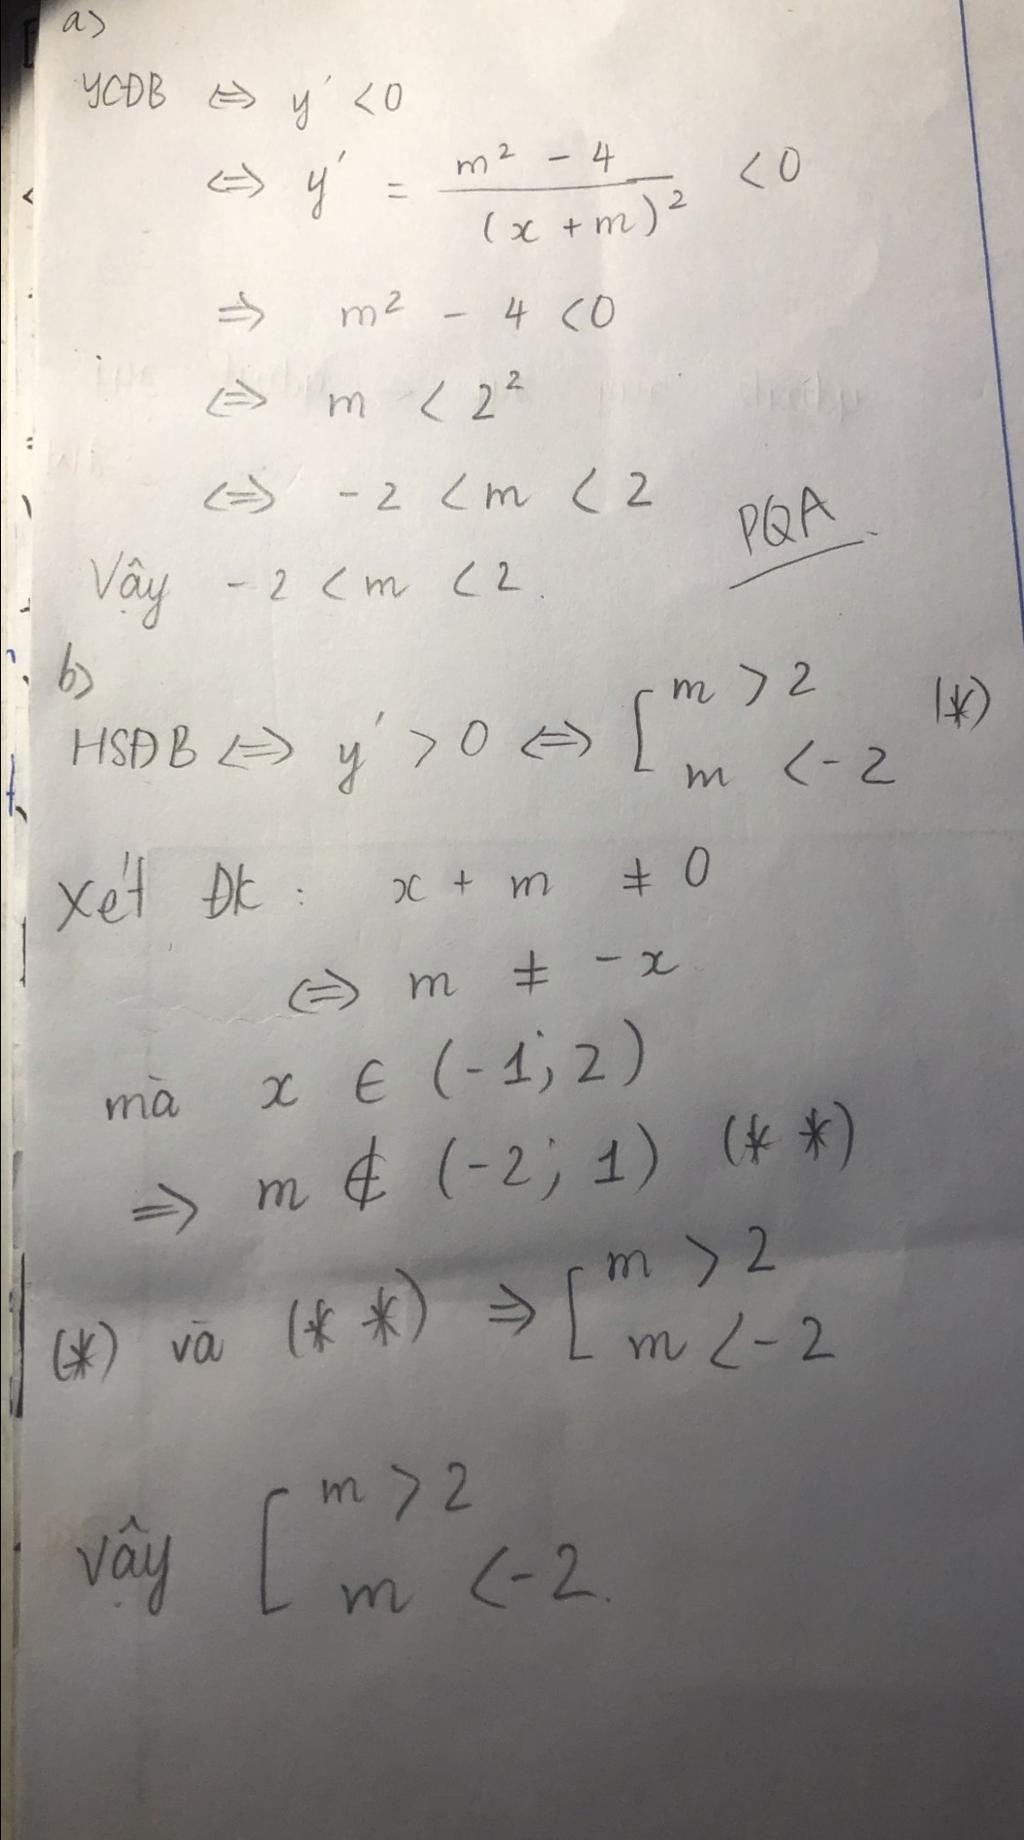 a)
YCĐB ⇔ y' < 0
⇔ y' = \frac{m² - 4}{(x + m)²} < 0
⇒ m² - 4 < 0
⇔ m < 2²
⇔ -2 < m < 2
PQA
Vậy -2 < m < 2.
b)
HSĐB ⇔ y' > 0 ⇔ [ m > 2
m < -2 (*)
Xét ĐK : x + m ≠ 0
⇔ m ≠ -x
mà x ∈ (-1; 2)
⇒ m ∉ (-2; 1) (* *)
(*) và (* *) ⇒ [ m > 2
m < -2
Vậy [ m > 2
m < -2.